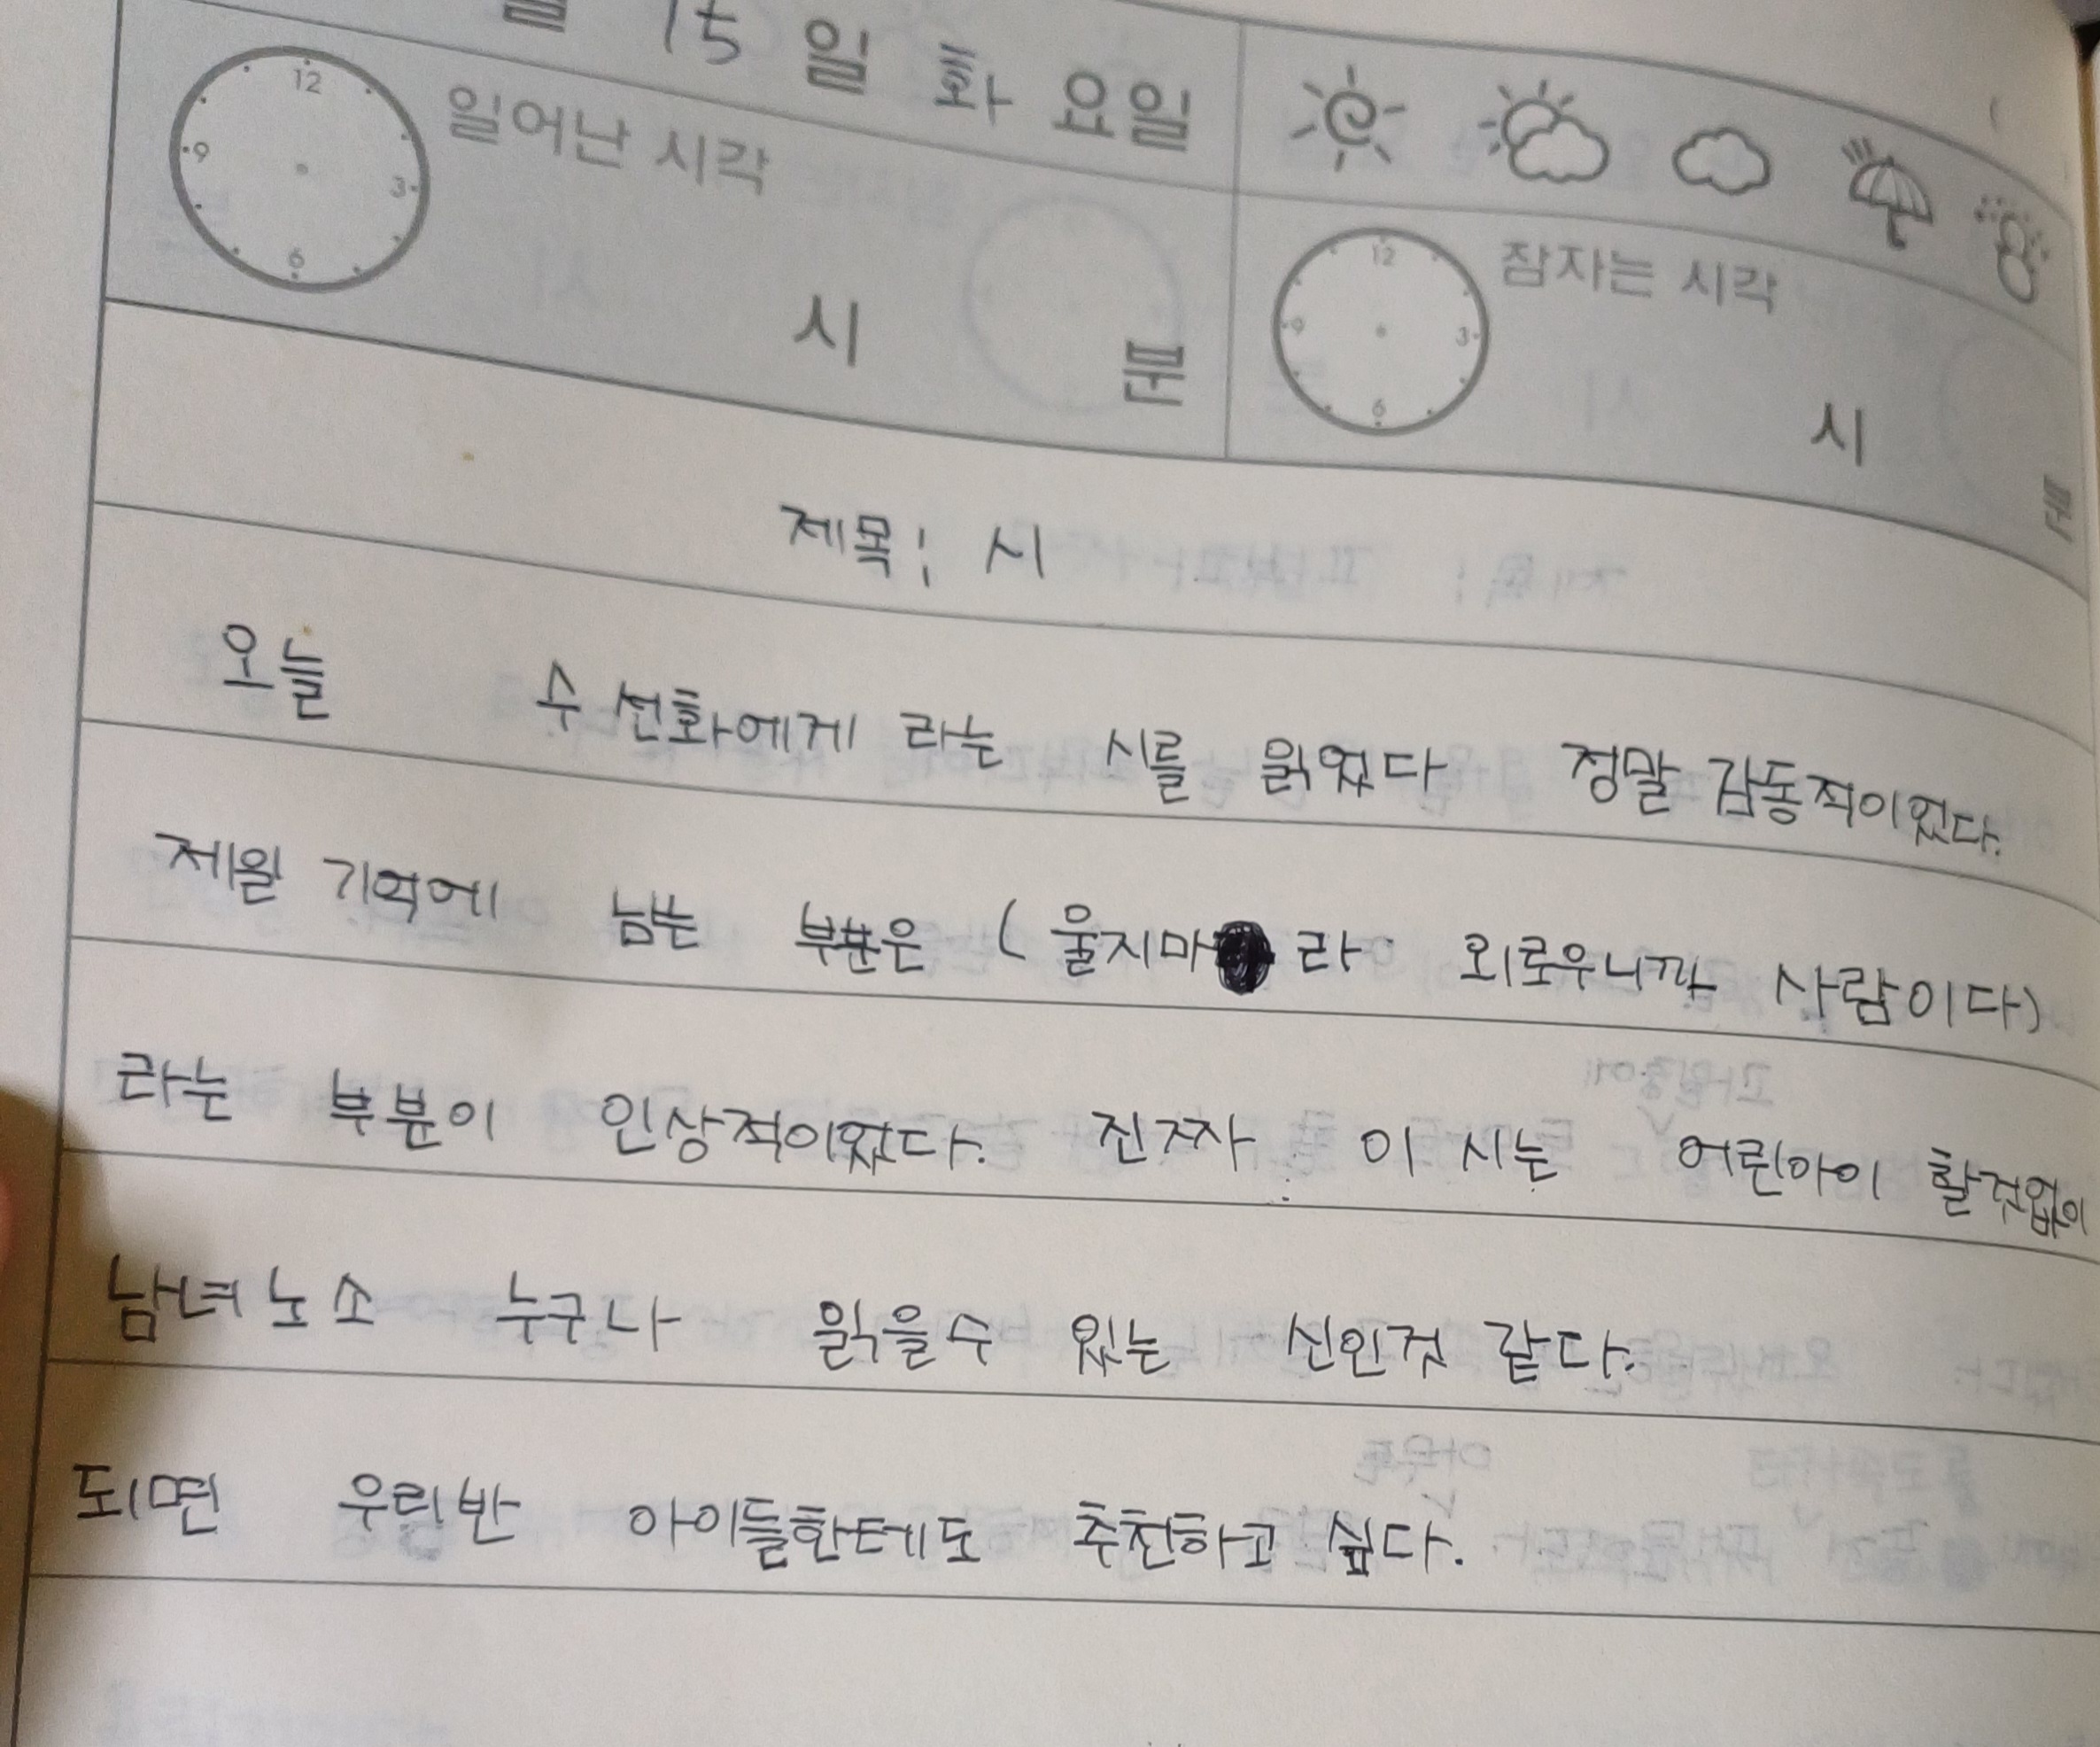 월 15 일 화 요일
12 3 6 9 일어난 시각
시 분
12 3 6 9 잠자는 시각
시 분
제목: 시
오늘 수선화에게 라는 시를 읽었다 정말 감동적이었다.
제일 기억에 남는 부분은 (울지마 라 외로우니까 사람이다)
라는 부분이 인상적이었다. 진짜 이 시는 어린아이 할것없이
남녀노소 누구나 읽을수 있는 신인것 같다.
되면 우리반 아이들한테도 추천하고 싶다.